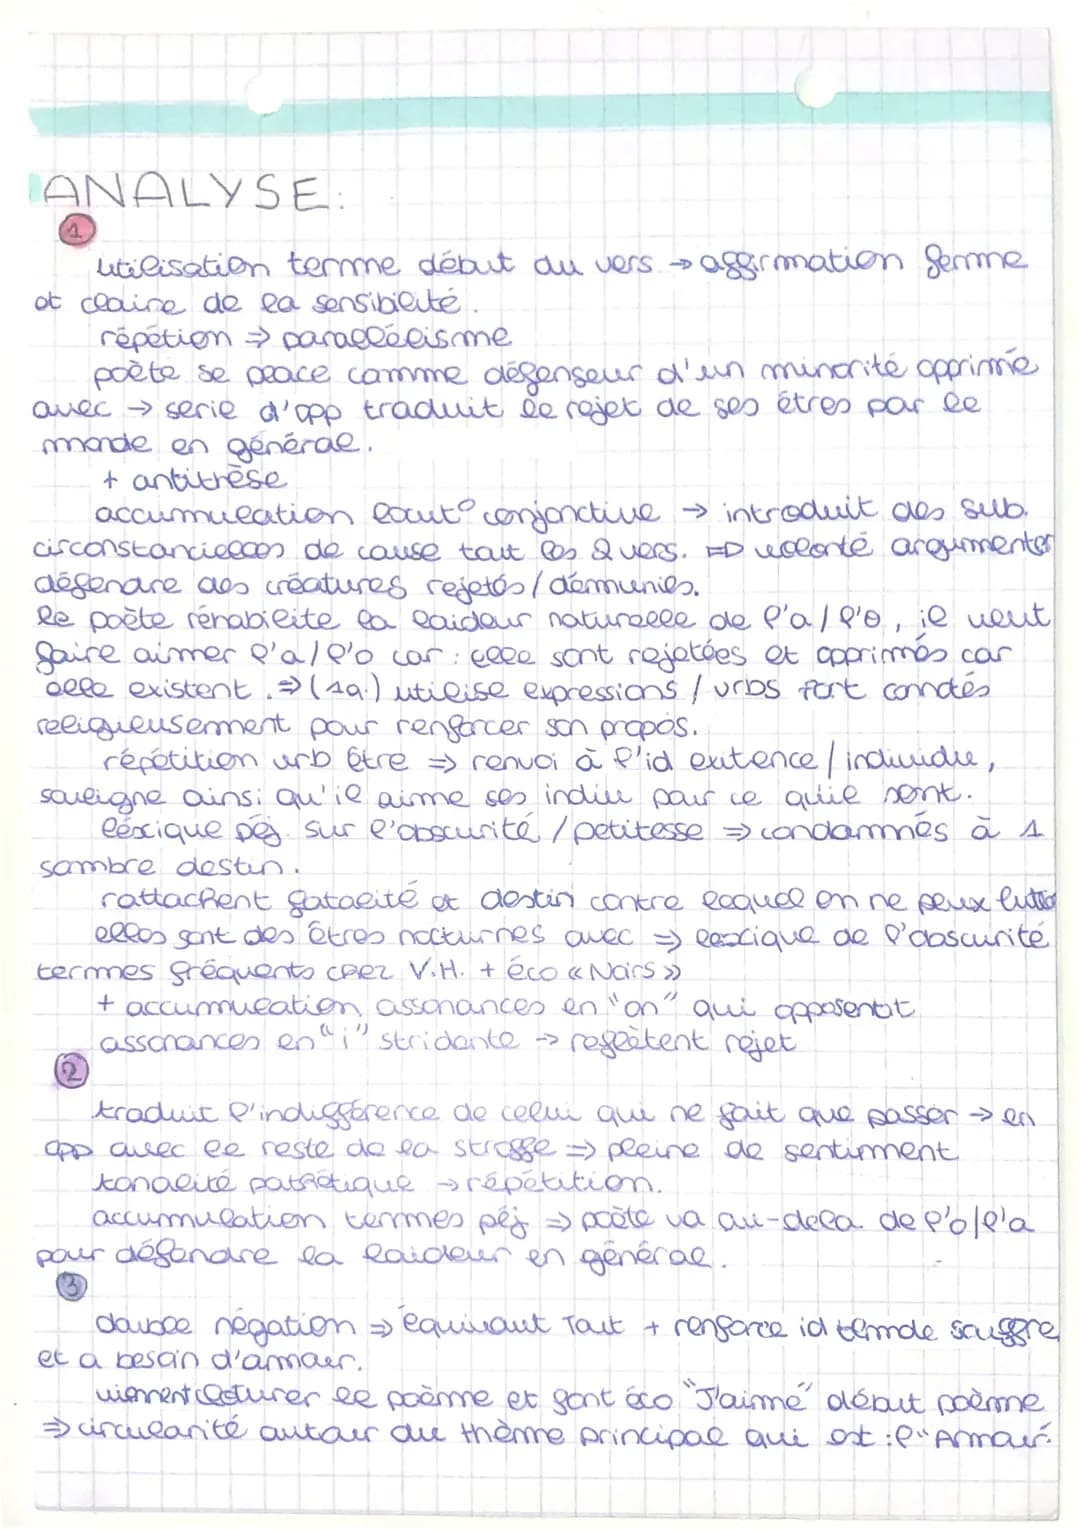 ANALYSE:
1
utilisation terme début du vers → affirmation ferme
et claire de la sensibilité.
répétion ⇒ parallélisme
poète se place comme défenseur d'un minorité opprimé
avec → serie d'opp traduit le rejet de ses êtres par le
monde en général.
+ antithèse
accumulation locut° conjonctive → introduit des sub.
circonstancielles de cause tout les 2 vers. ⇒ volonté argumenter
défendre des créatures rejetés / démunies.
le poète réhabilite la laideur naturelle de l'a / l'o, il veut
faire aimer l'a/l'o car : elle sont rejetées et opprimés car
elle existent. ⇒ (1a.) utilise expressions / vrbs fort connotés
religieusement pour renforcer son propos.
répétition vrb être ⇒ renvoi à l'id existence / individu,
souligne ainsi qu'il aime ses indiv pour ce qu'il sont.
léxique péj. sur l'obscurité / petitesse ⇒ condamnés à 1
sombre destin.
rattachent fatalité et destin contre lequel on ne peux lutter
elles sont des êtres nocturnes avec ⇒ lexcique de l'obscurité
termes fréquents chez V.H. + éco « Noirs »
+ accumulation, assonances en "on" qui opposent
assonances en "i" stridante → reflètent rejet
2
traduit l'indifférence de celui qui ne fait que passer → en
opp avec le reste de la stroffe ⇒ pleine de sentiment
tonalité pathétique → répétition.
accumulation termes péj ⇒ poète va au-dela. de l'o/l'a
pour défendre la laideur en général.
3
double négation ⇒ équivaut Tout + renforce id monde souffre
et a besoin d'amour.
viennent clôturer le poème et font éco "J'aime" début poème
⇒ circularité autour du thème principal qui est : l'"Amour.